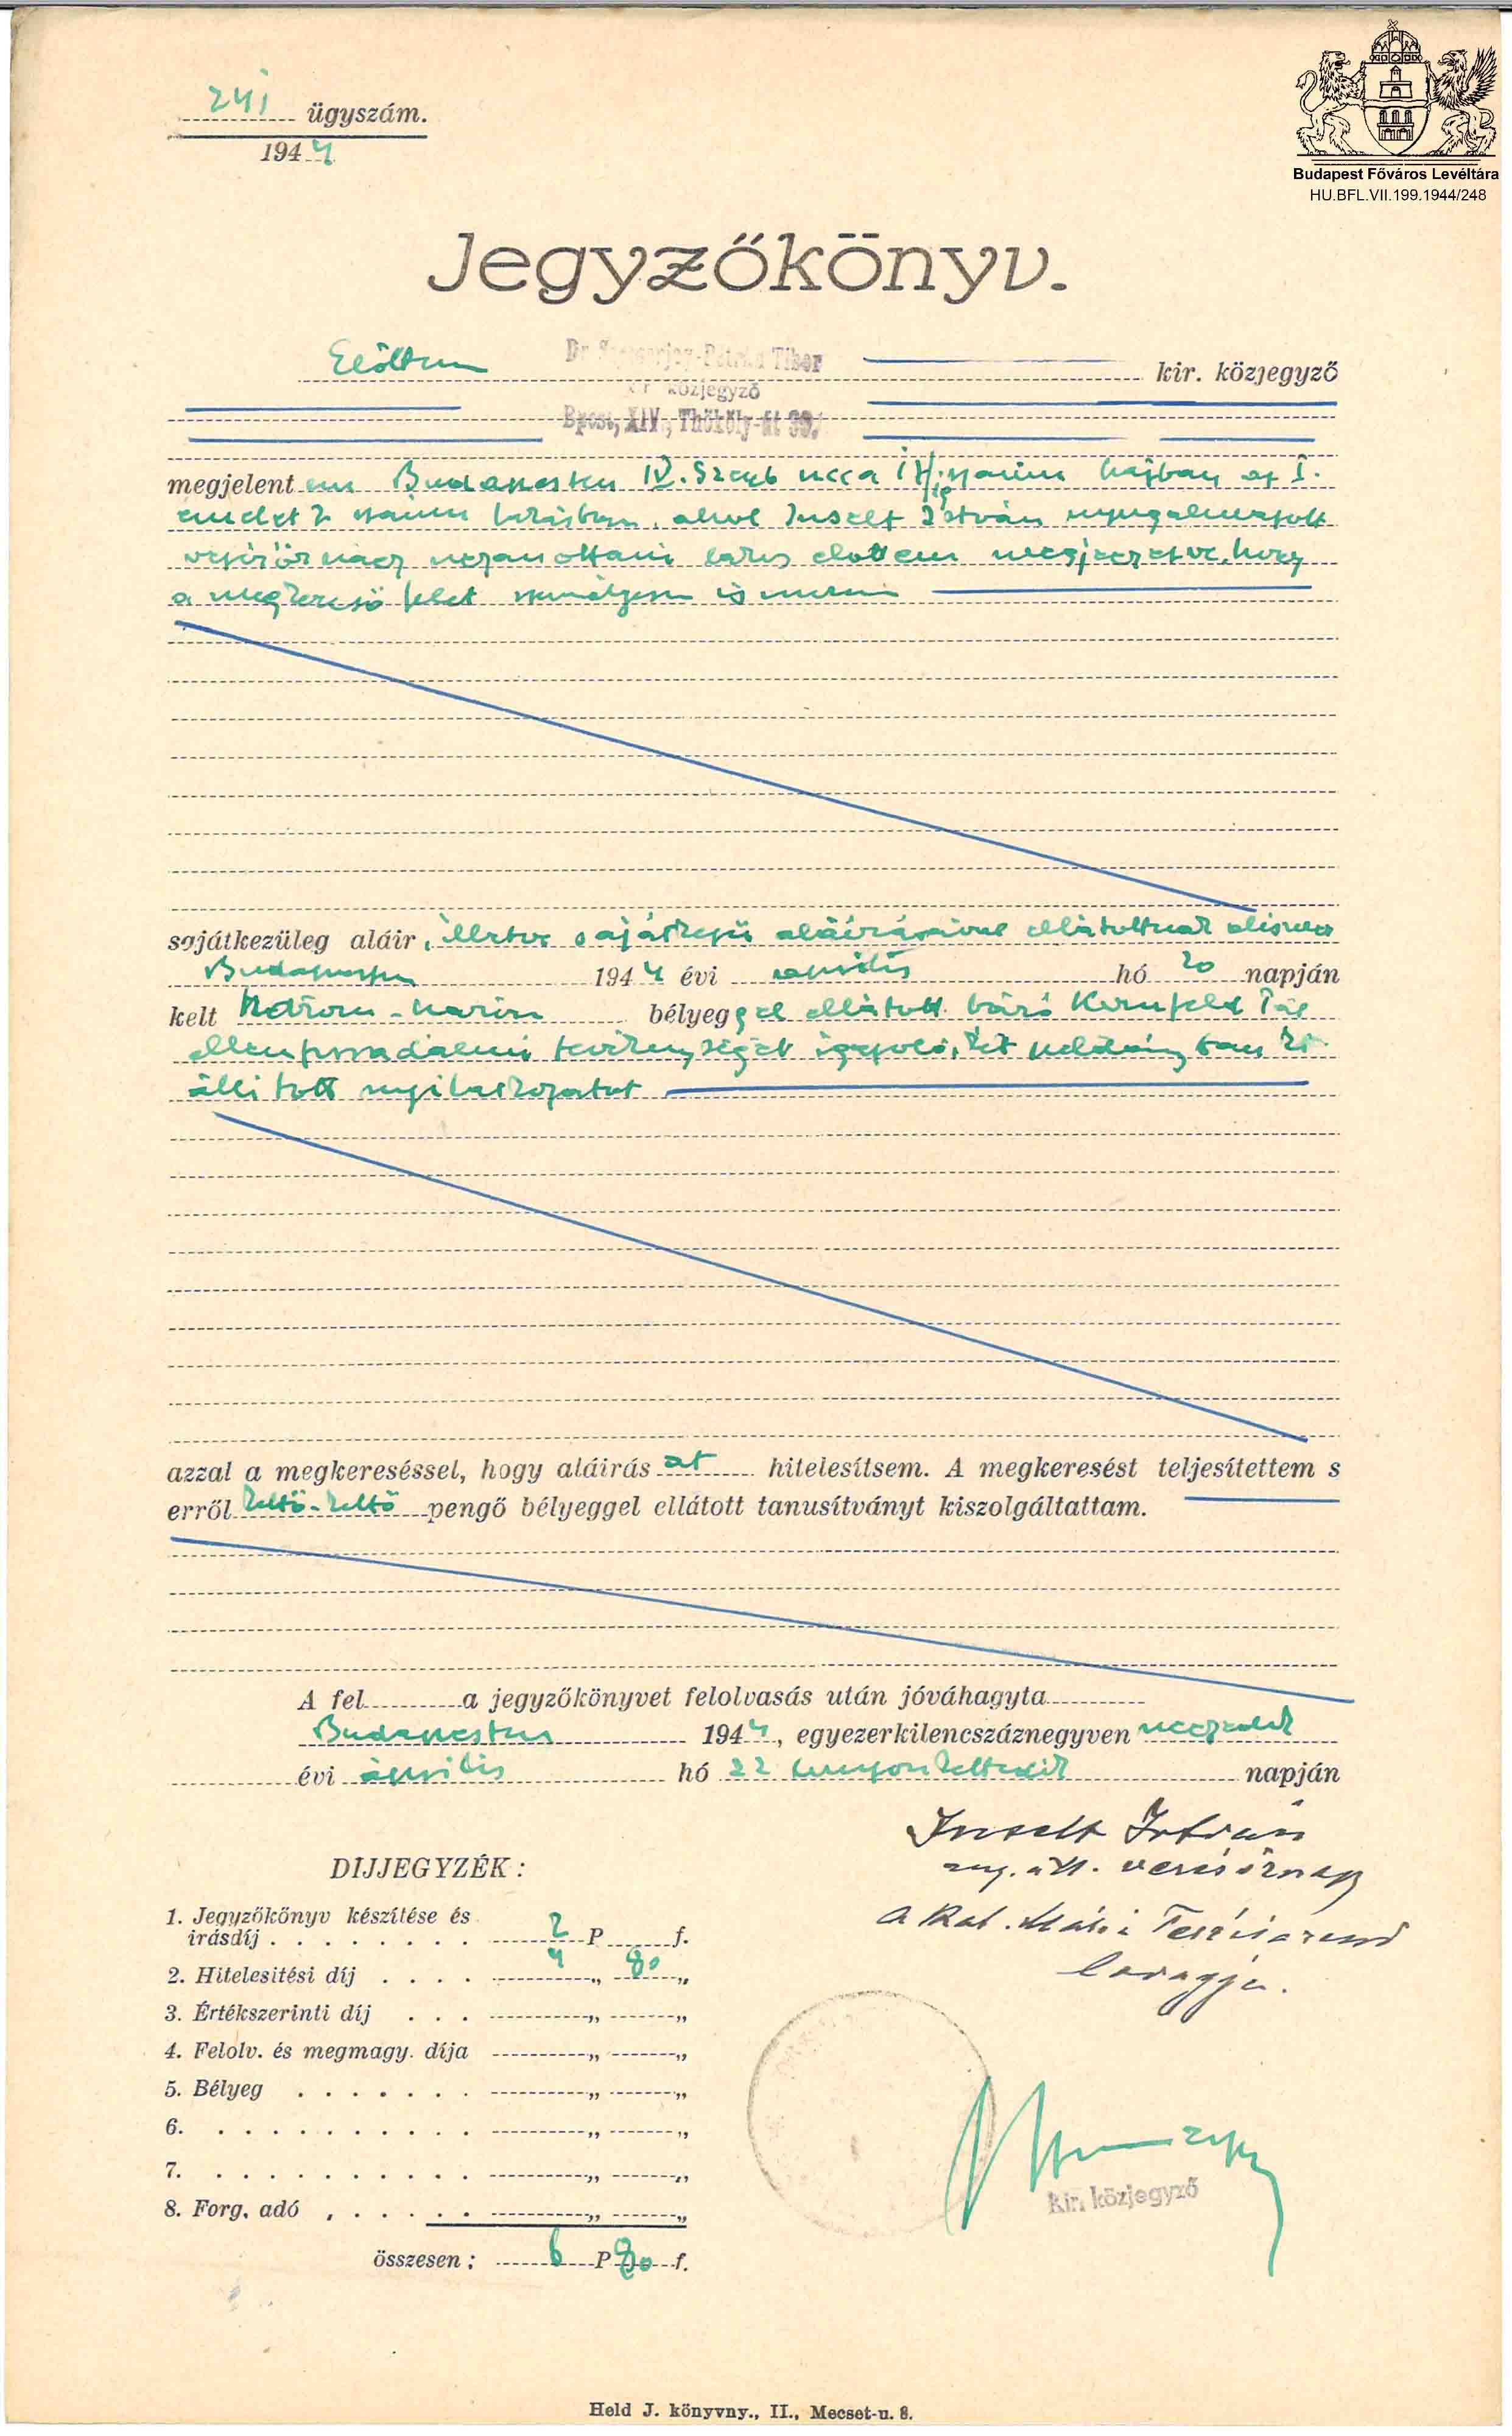 241 ügyszám.
1944
Budapest Főváros Levéltára
HU.BFL.VII.199.1944/248
Jegyzőkönyv.
Előttem Dr Tibor kir. közjegyző
kir közjegyző
Bpest, XIV., Thököly-út
megjelentem Budapesten IV. Szerb ucca számu házban az I.
emelet 2 számu lakásban, ahol Inselt István nyugalmazott
vezérőrnagy ugyanottani lakos előttem megjegyezve, hogy
a megkereső felet személyesen ismerem
sajátkezüleg aláir, illetve sajátkezü aláirásával ellátottnak elismer
Budapesten 1944 évi április hó 20 napján
kelt három-három bélyeggel ellátott báró Kornfeld Pál
ellenforradalmi tevékenységét igazoló, két példányban ki
állitott nyilatkozatot
azzal a megkereséssel, hogy aláirását hitelesítsem. A megkeresést teljesítettem s
erről kettő-kettő pengő bélyeggel ellátott tanusítványt kiszolgáltattam.
A fel a jegyzőkönyvet felolvasás után jóváhagyta
Budapesten 1944, egyezerkilencszáznegyvennegyedik
évi április hó 22 huszonkettedik napján
Inselt István
nug. áll. vezérőrnagy
a Kat. Mária Terézia rend
lovagja.
DIJJEGYZÉK:
1. Jegyzőkönyv készítése és
irásdíj 2 P f.
2. Hitelesitési díj 4 „ 80 „
3. Értékszerinti díj „ „
4. Felolv. és megmagy. díja „ „
5. Bélyeg „ „
6. „ „
7. „ „
8. Forg. adó „ „
összesen: 6 P 80 f.
kir. közjegyző
Held J. könyvny., II., Mecset-u. 8.